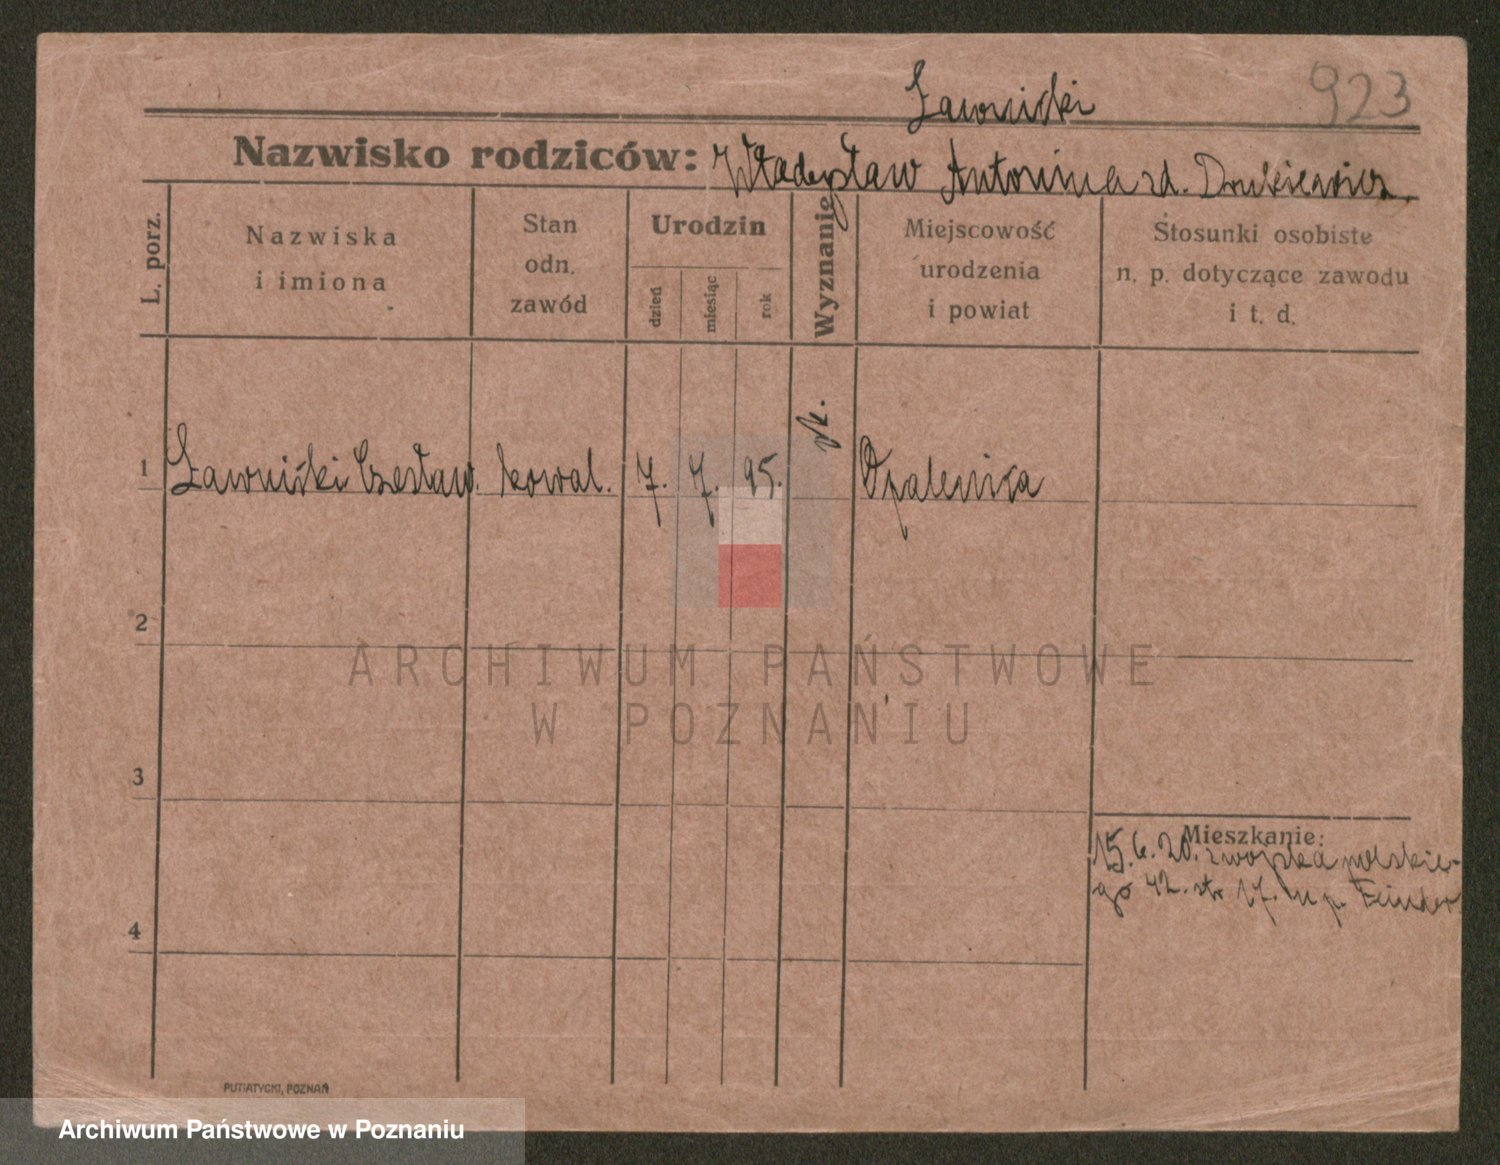 Ławniski
923
Nazwisko rodziców: Władysław Antonina zd.
L. porz.
Nazwiska
i imiona
Stan
odn.
zawód
Urodzin
dzień
miesiąc
rok
Wyznanie
Miejscowość
urodzenia
i powiat
Stosunki osobiste
n. p. dotyczące zawodu
i t. d.
1 Ławniski Czesław. kowal. 7. 7. 95. rk. Opalenica
2
3
4
Mieszkanie:
15.6.20. z wojska polskie-
go 42. str 17. u p.
PUTIATYCKI, POZNAŃ
ARCHIWUM PAŃSTWOWE
W POZNANIU
Archiwum Państwowe w Poznaniu